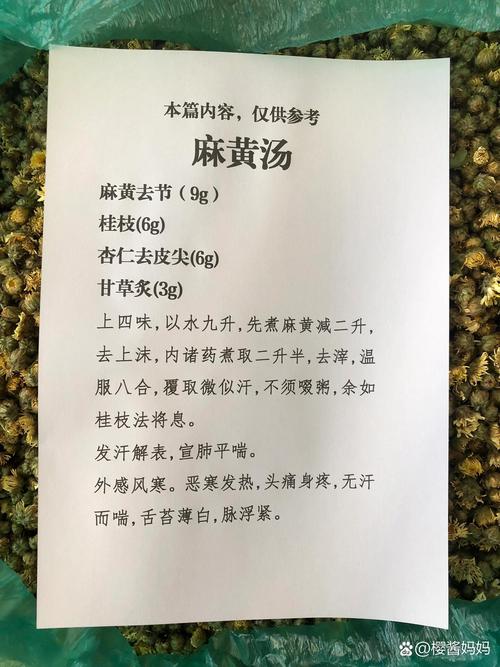 本篇内容，仅供参考
麻黄汤
麻黄去节（9g）
桂枝(6g)
杏仁去皮尖(6g)
甘草炙(3g)
上四味，以水九升，先煮麻黄减二升，
去上沫，内诸药煮取二升半，去滓，温
服八合，覆取微似汗，不须啜粥，余如
桂枝法将息。
发汗解表，宣肺平喘。
外感风寒。恶寒发热，头痛身疼，无汗
而喘，舌苔薄白，脉浮紧。
@樱酱妈妈